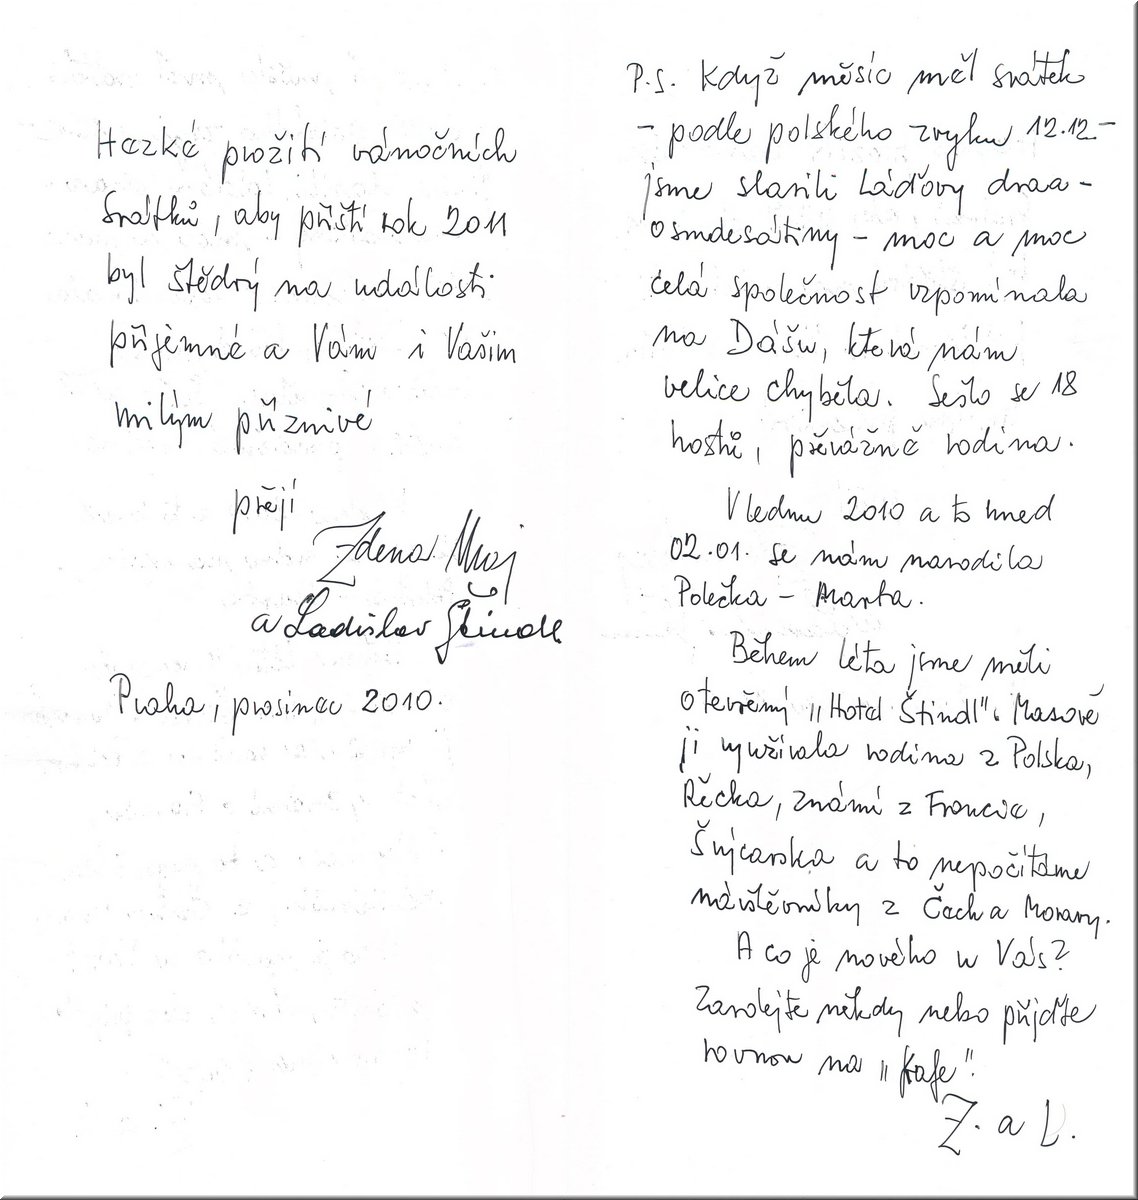 Hezké prožití vánočních
svátků, aby příští rok 2011
byl štědrý na události
příjemné a Vám i Vašim
milým příznivé
přejí
Zdena
a Ladislav Štindl
Praha, prosinec 2010.
P.S. Když měsíc měl svátek
- podle polského zvyku 12.12-
jsme slavili Láďovy dvaa-
osmdesátiny - moc a moc
celá společnost vzpomínala
na Dášu, která nám
velice chyběla. Sešlo se 18
hostů, převážně rodina.
V lednu 2010 a to hned
02.01. se nám narodila
Polečka - Marta.
Během léta jsme měli
otevřený "Hotel Štindl". Masově
ji využívala rodina z Polska,
Řecka, známí z Francie,
Švýcarska a to nepočítáme
návštěvníky z Čech a Moravy.
A co je nového u Vás?
Zavolejte někdy nebo přijďte
rovnou na "kafe".
Z. a L.